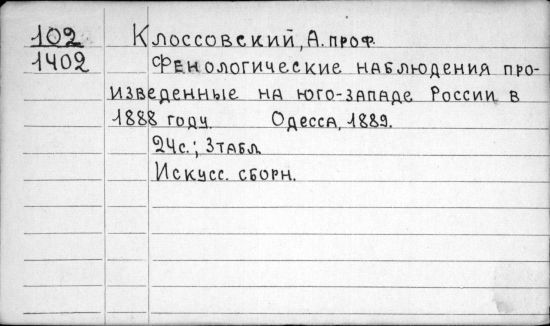 102 Клоссовский, А. проф.
1402 Фенологические наблюдения про-
изведенные на юго-западе России в
1888 году. Одесса, 1889.
24с.; 3табл
Искусс. сборн.